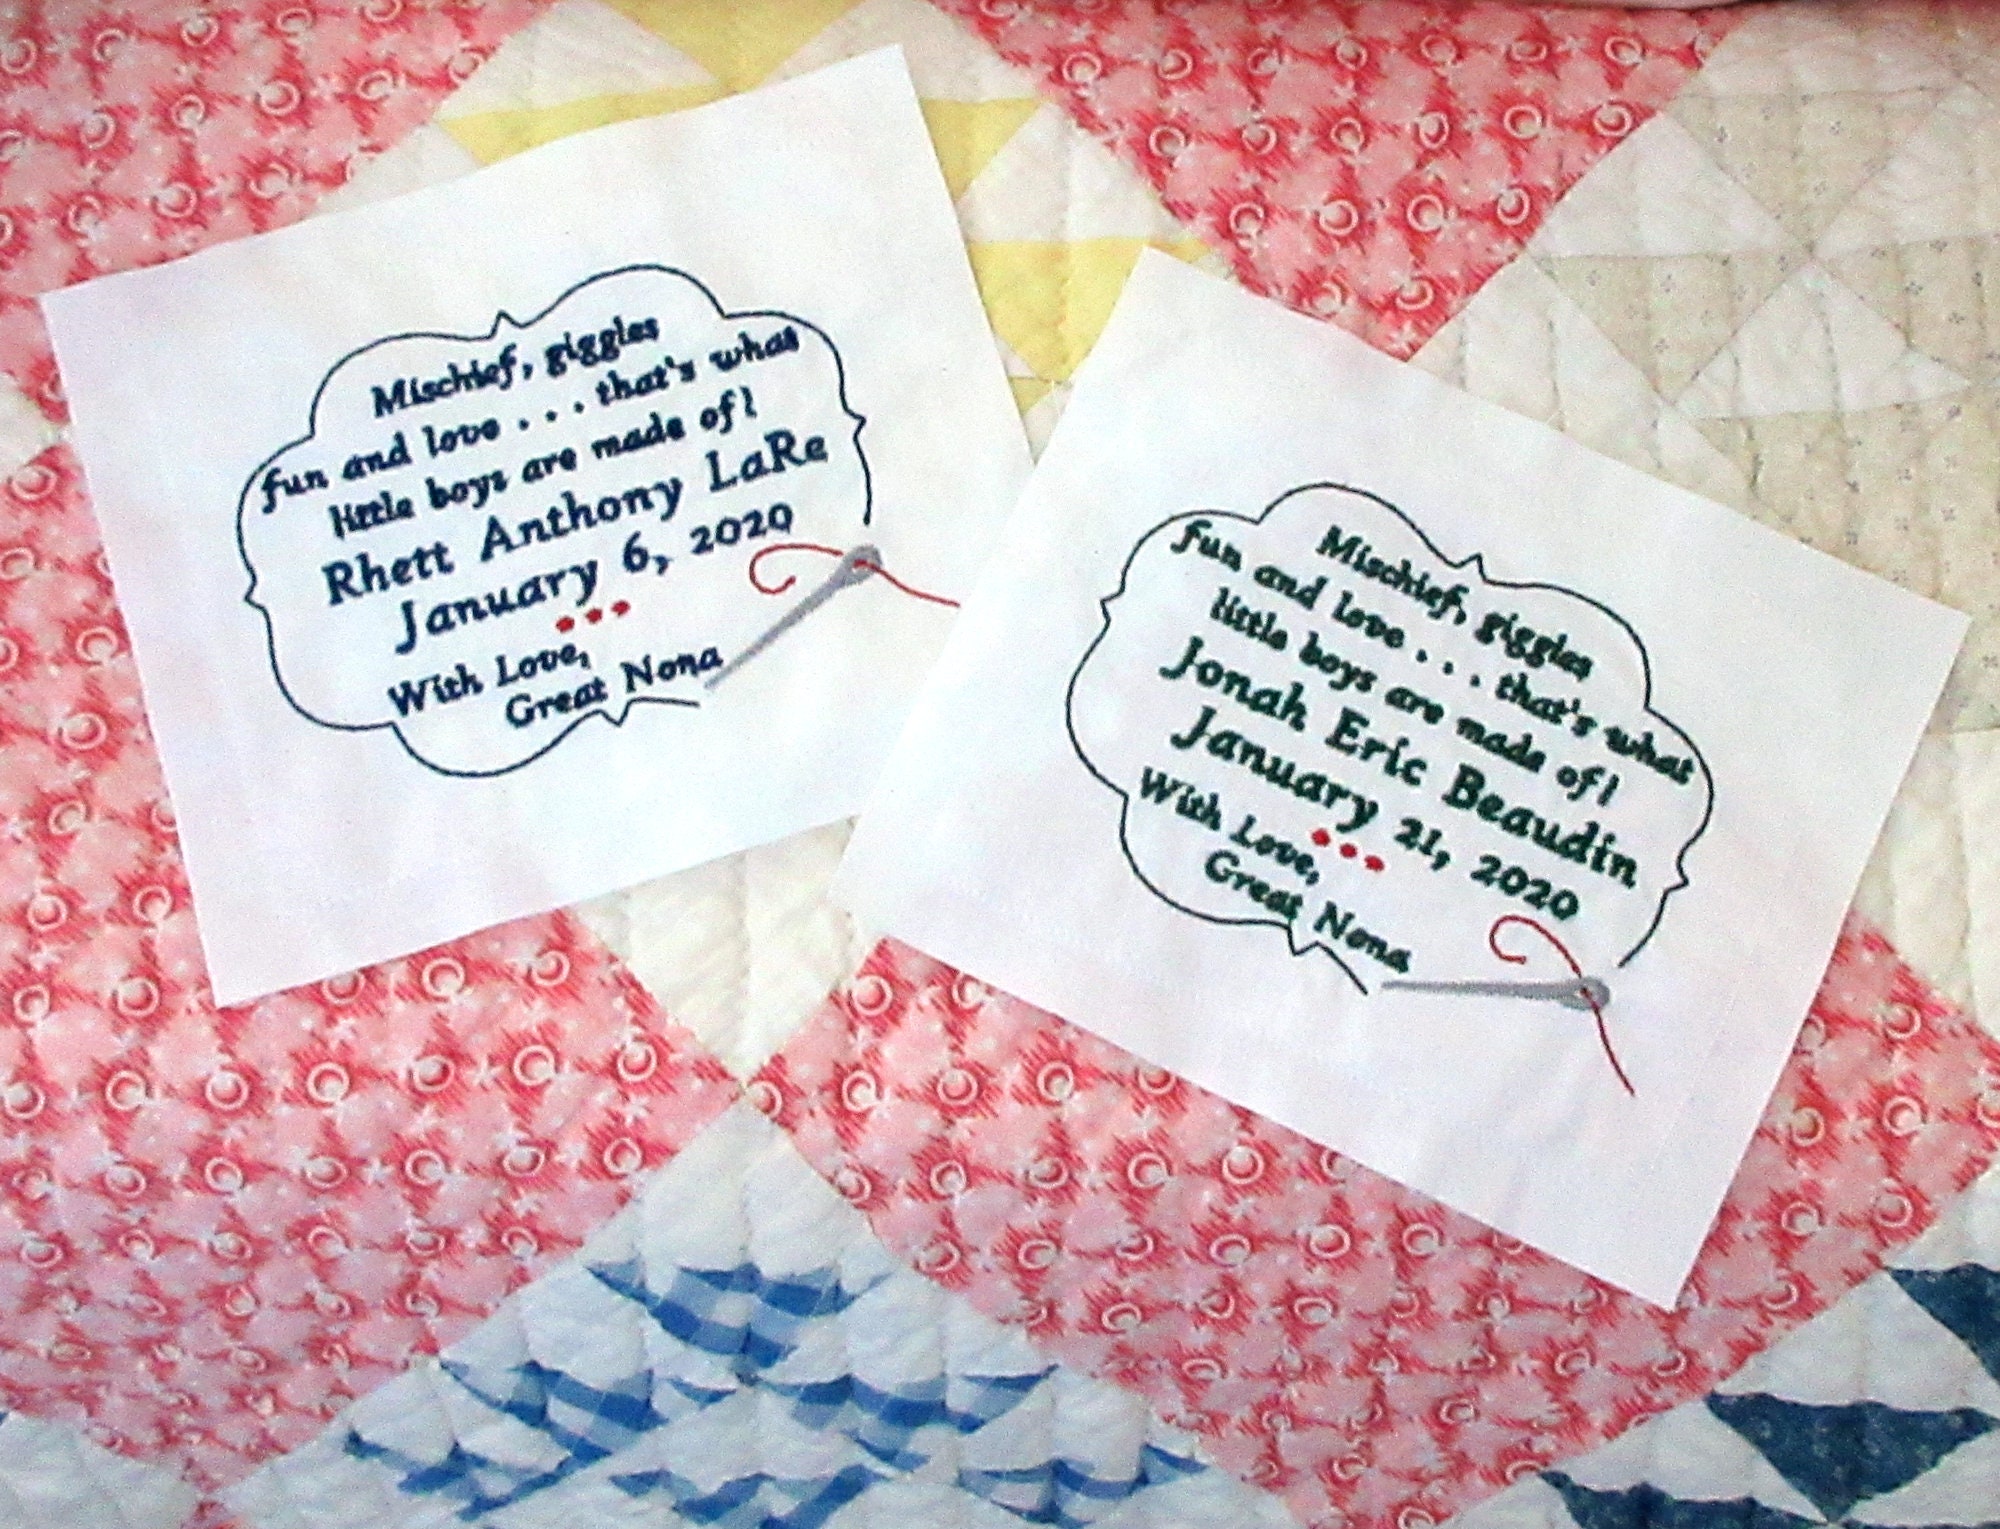 Mischief, giggles
fun and love . . . that's what
little boys are made of!
Rhett Anthony LaRe
January 6, 2020
With Love,
Great Nona
Mischief, giggles
fun and love . . . that's what
little boys are made of!
Jonah Eric Beaudin
January 21, 2020
With Love,
Great Nona